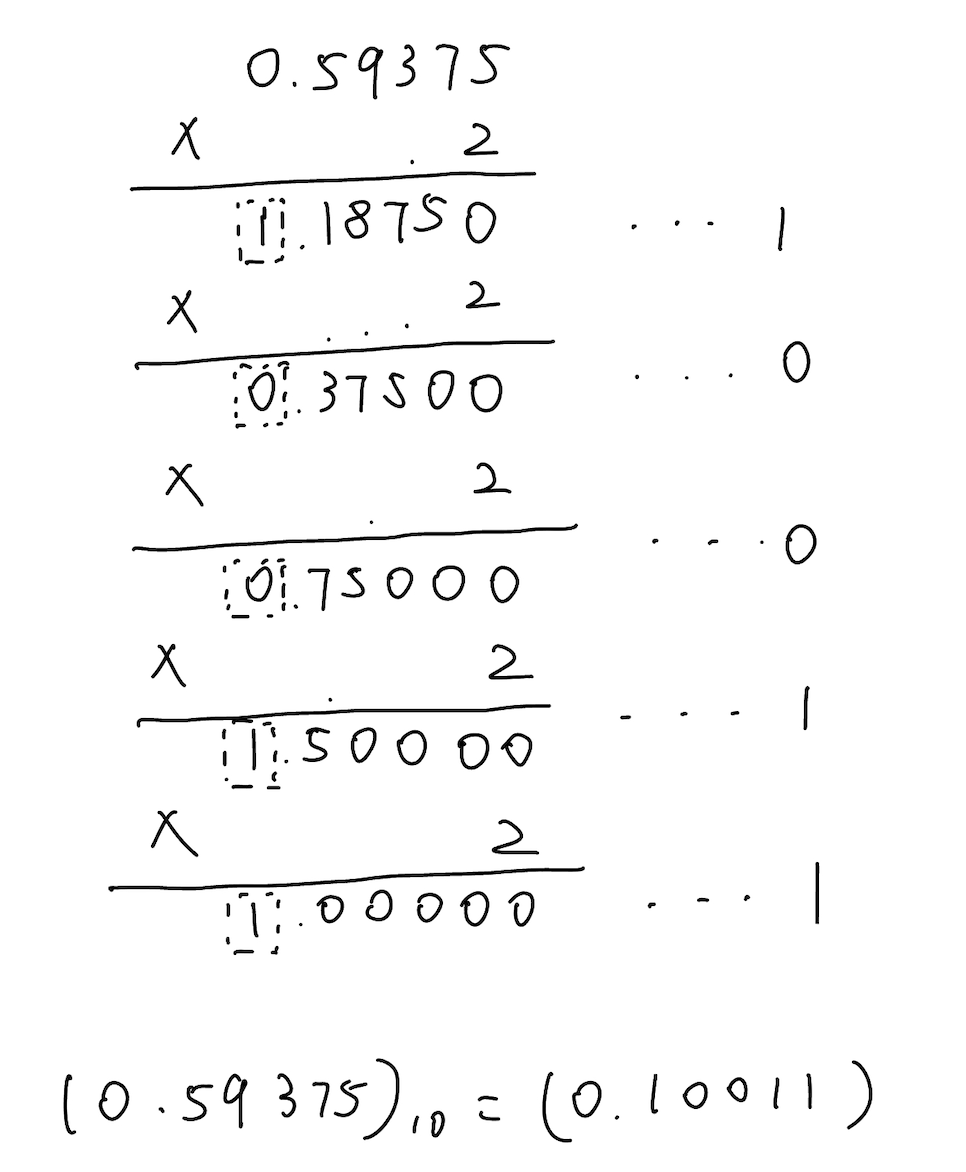 0.59375
× 2
1.18750 ... 1
× 2
0.37500 ... 0
× 2
0.75000 ... 0
× 2
1.50000 ... 1
× 2
1.00000 ... 1
(0.59375)₁₀ = (0.10011)